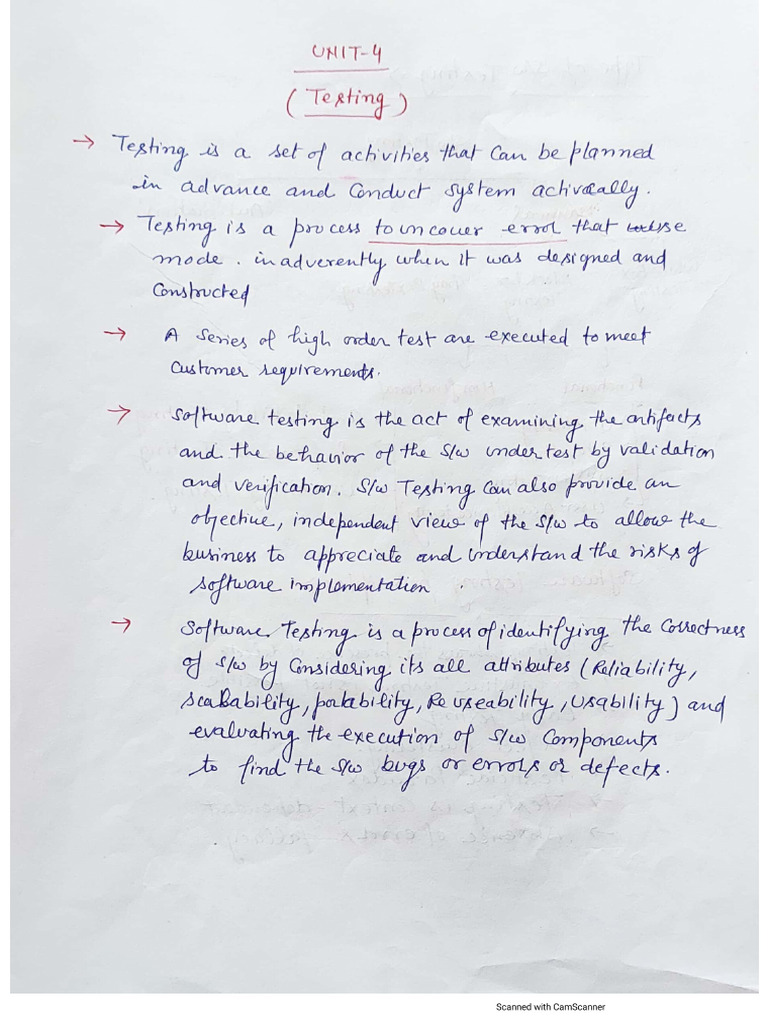 UNIT-4
(Testing)
→ Testing is a set of activities that can be planned
in advance and conduct system activocally.
→ Testing is a process to uncover error that
mode. inadverently, when it was designed and
constructed
→ A series of high order test are executed to meet
customer requirements.
→ Software testing is the act of examining the artifacts
and the behavior of the S/w under test by validation
and verification. S/w Testing can also provide an
objective, independent view of the S/w to allow the
business to appreciate and understand the risks of
software implementation.
→ Software Testing is a process of identifying the correctness
of S/w by considering its all attributes (Reliability,
scalability, portability, Re useability, Usability) and
evaluating the execution of S/w components
to find the S/w bugs or errors or defects.
Scanned with CamScanner